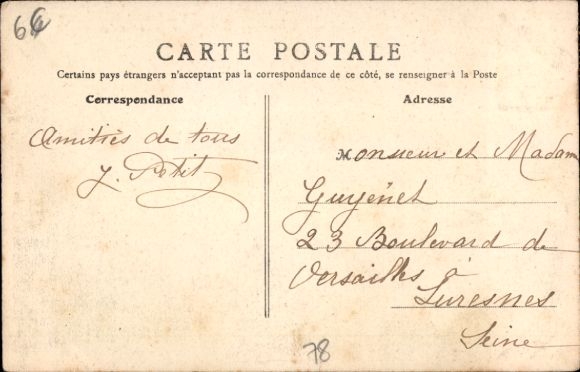 6
CARTE POSTALE
Certains pays étrangers n'acceptant pas la correspondance de ce côté, se renseigner à la Poste
Correspondance
Amitiés de tous
J. Petit
Adresse
Monsieur et Madam
Guyénet
23 Boulevard de
Versailles à
Suresnes
Seine
78